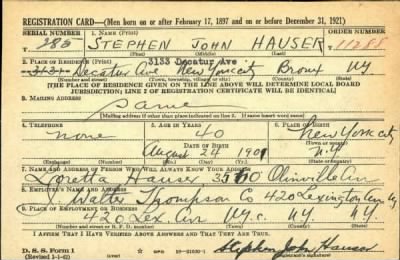 REGISTRATION CARD—(Men born on or after February 17, 1897 and on or before December 31, 1921)
SERIAL NUMBER 1. NAME (Print) ORDER NUMBER
285 STEPHEN JOHN HAUSER 11288
3133 Decatur Ave
2. PLACE OF RESIDENCE (Print)
Decatur Ave New York City Bronx NY
(Number and street) (Town, township, village or city) (County) (State)
[THE PLACE OF RESIDENCE GIVEN ON THE LINE ABOVE WILL DETERMINE LOCAL BOARD
JURISDICTION; LINE 2 OF REGISTRATION CERTIFICATE WILL BE IDENTICAL]
3. MAILING ADDRESS
Same
[Mailing address if other than place indicated on line 2. If same insert word same]
4. TELEPHONE 5. AGE IN YEARS 6. PLACE OF BIRTH
none 40 New York City
DATE OF BIRTH
August 24 1901 N.Y
7. NAME AND ADDRESS OF PERSON WHO WILL ALWAYS KNOW YOUR ADDRESS
Loretta Hauser Olinville Ave
8. EMPLOYER'S NAME AND ADDRESS
J. Walter Thompson Co 420 Lexington Ave
9. PLACE OF EMPLOYMENT OR BUSINESS
420 Lex. Ave N.Y.C. NY. NY.
(Number and street or R. F. D. number) (Town) (County) (State)
I AFFIRM THAT I HAVE VERIFIED ABOVE ANSWERS AND THAT THEY ARE TRUE.
D. S. S. Form 1 Stephen John Hauser
(Revised 1-1-42) (Registrant's signature)